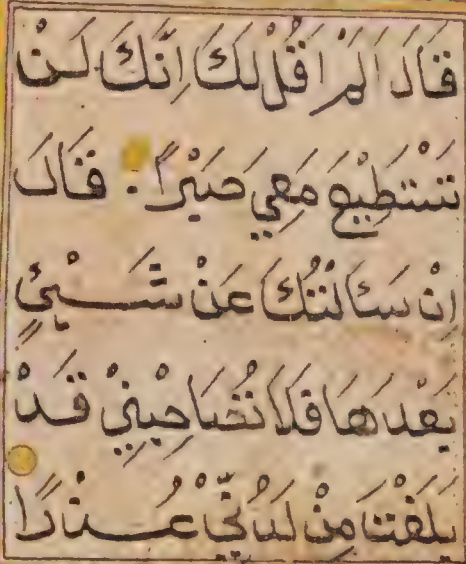 قَالَ اَلَمْ اَقُلْ لَكَ اِنَّكَ لَنْ
تَسْتَطِيْعَ مَعِيَ صَبْرًا ۰ قَالَ
اِنْ سَئَالْتُكَ عَنْ شَــيْئٍ
بَعْدَهَا فَلَا تُصَاحِبْنِيْ قَدْ
بَلَغْتَ مِنْ لَدُنِّيْ عُــذْرًا